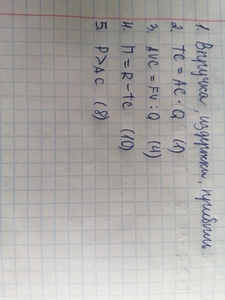 1. Выручка, издержки, прибыль
2. TC = AC · Q (1)
3. AVC = FV : Q (4)
4. П = R - TC (10)
5. P > AC (8)